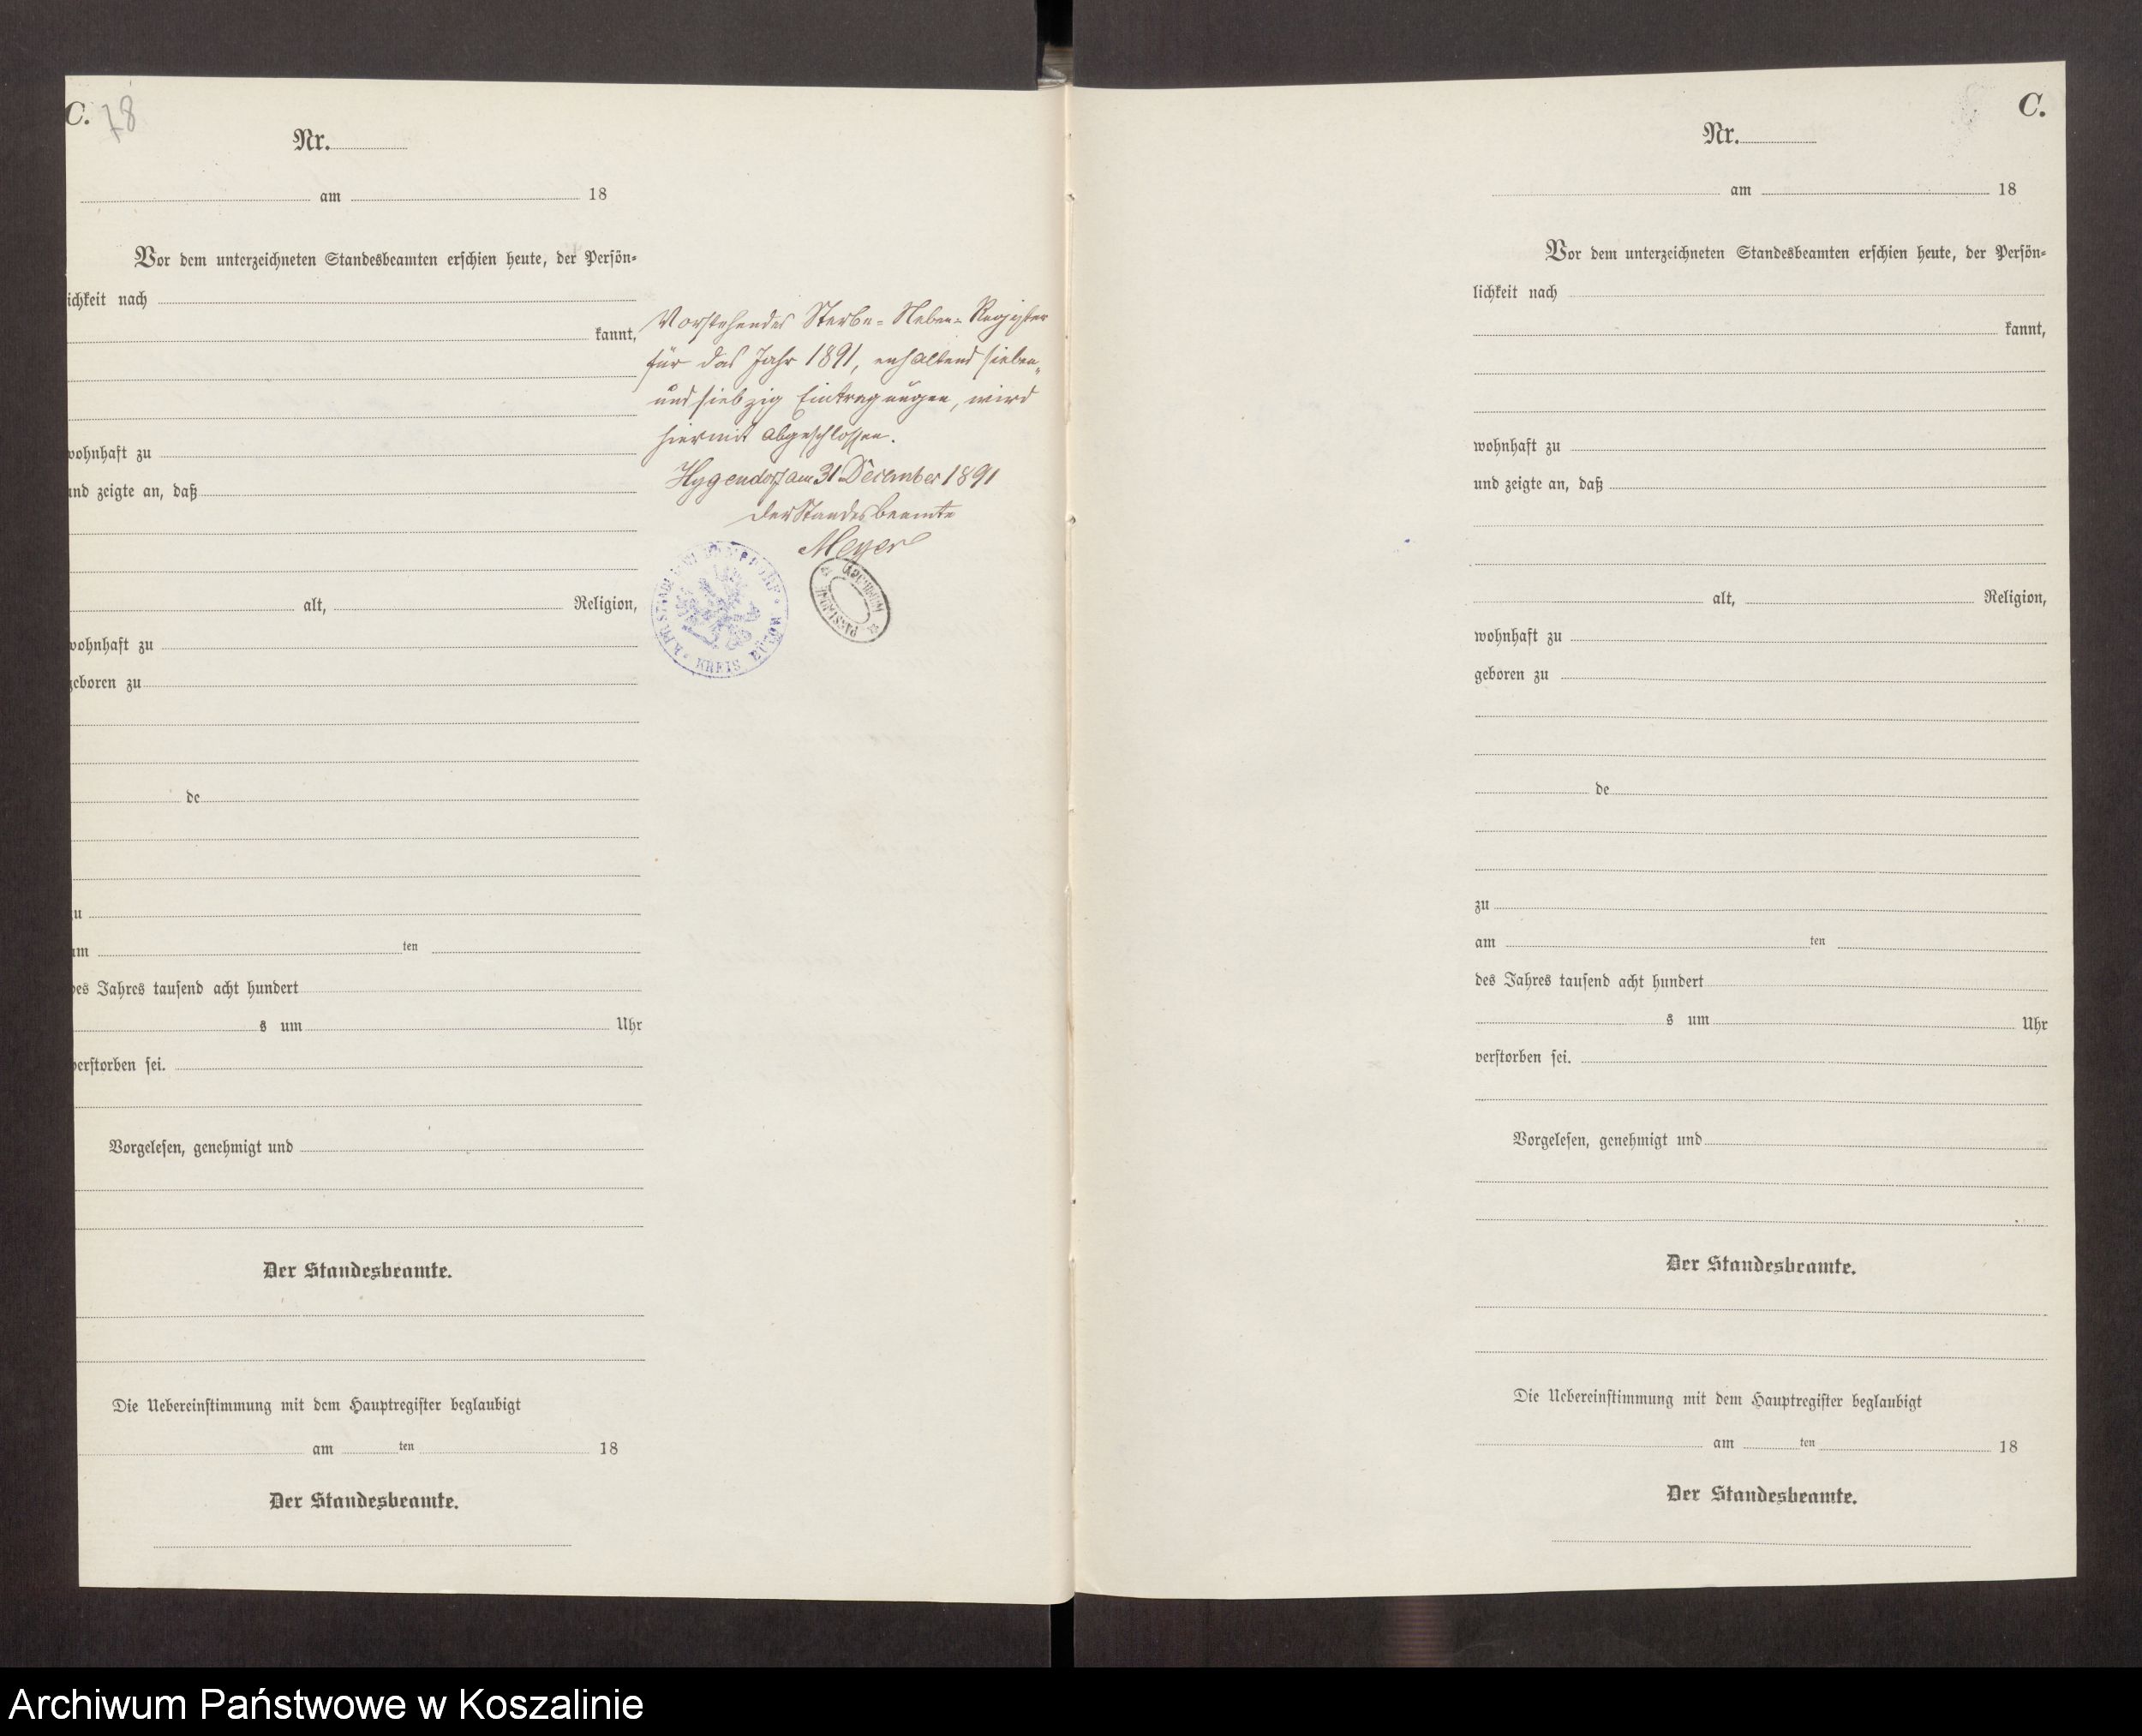 C. 78
Nr.
am 18
Vor dem unterzeichneten Standesbeamten erschien heute, der Persön-
ichkeit nach
kannt,
wohnhaft zu
und zeigte an, daß
alt, Religion,
wohnhaft zu
geboren zu
de
zu
am ten
des Jahres tausend acht hundert
s um Uhr
verstorben sei.
Vorgelesen, genehmigt und
Der Standesbeamte.
Die Uebereinstimmung mit dem Hauptregister beglaubigt
am ten 18
Der Standesbeamte.
Vorstehendes Sterbe-Neben-Register
für das Jahr 1891, enhaltend sieben-
und siebzig Eintragungen, wird
hiermit abgeschlossen.
am 31 December 1891
Der Standesbeamte
Meyer
KREIS BÜTOW
ARCHIWUM
C.
Nr.
am 18
Vor dem unterzeichneten Standesbeamten erschien heute, der Persön-
lichkeit nach
kannt,
wohnhaft zu
und zeigte an, daß
alt, Religion,
wohnhaft zu
geboren zu
de
zu
am ten
des Jahres tausend acht hundert
s um Uhr
verstorben sei.
Vorgelesen, genehmigt und
Der Standesbeamte.
Die Uebereinstimmung mit dem Hauptregister beglaubigt
am ten 18
Der Standesbeamte.
Archiwum Państwowe w Koszalinie